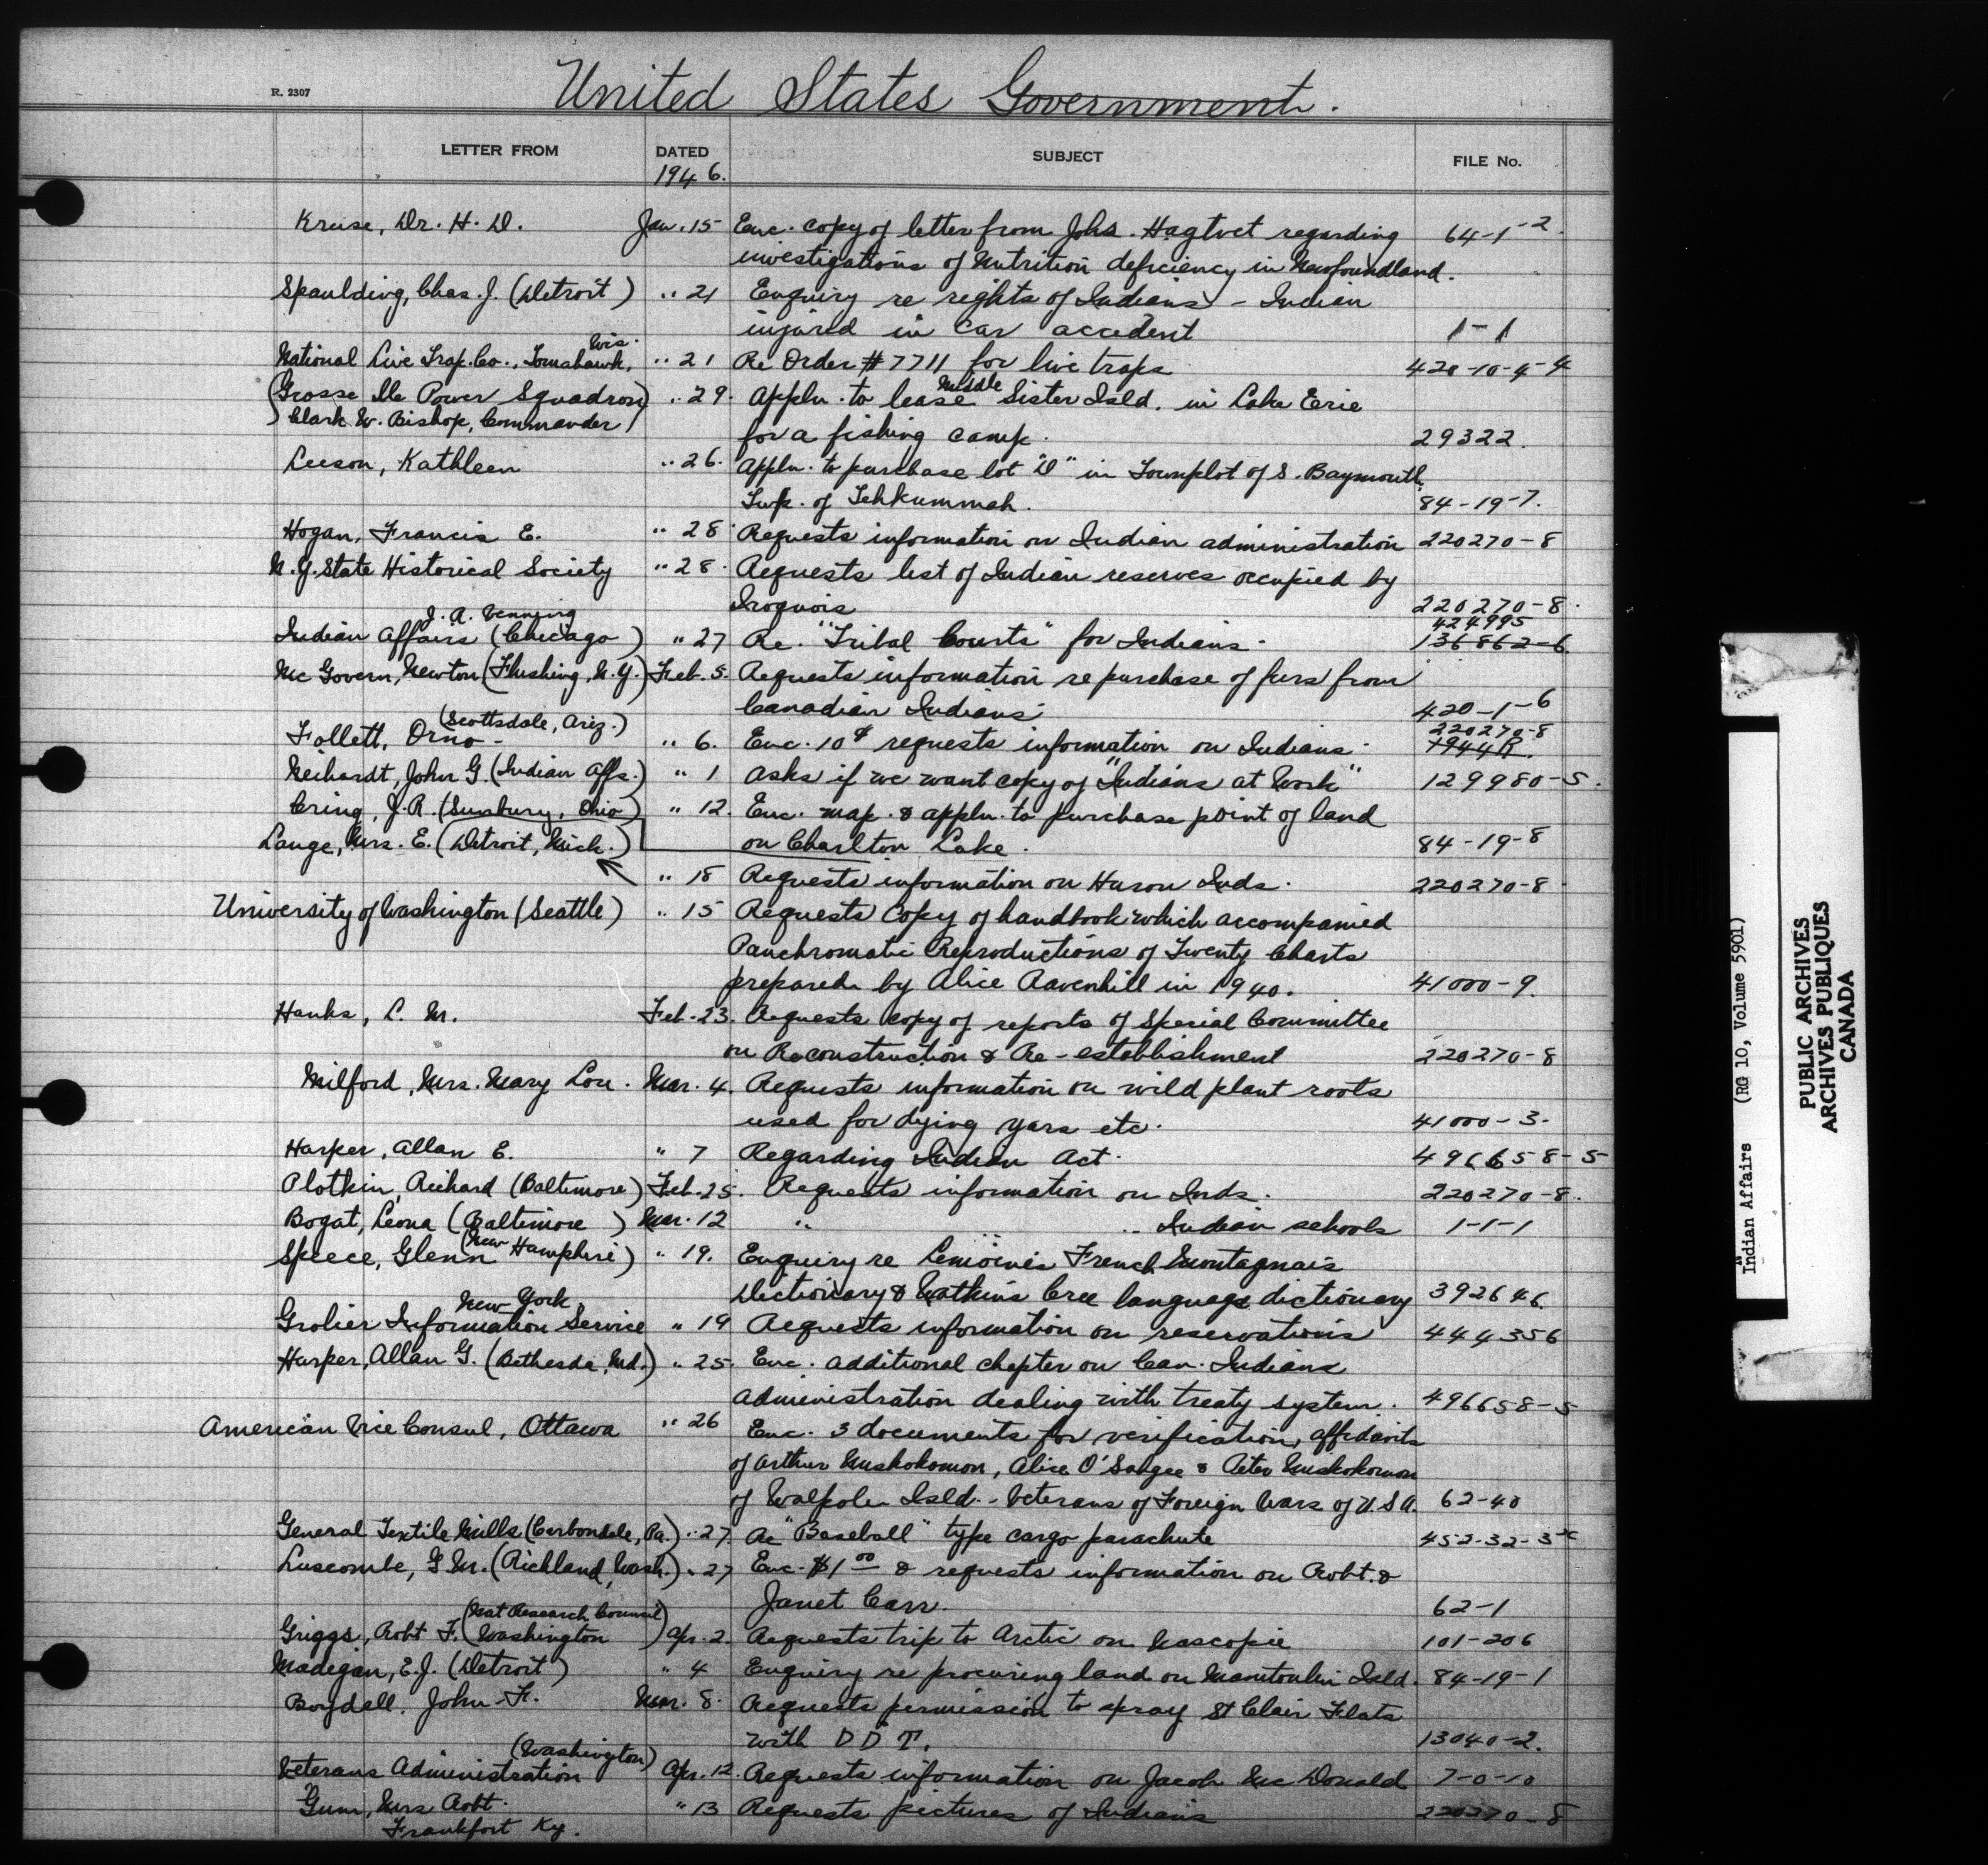 R. 2307
United States Government.
LETTER FROM DATED SUBJECT FILE No.
1946.
Kruse, Dr. H. D. Jan. 15 Enc. copy of letter from Johs. Hagtvet regarding 64-1-2.
investigations of Nutrition deficiency in Newfoundland.
Spaulding, Chas. J. (Detroit) " 21 Enquiry re rights of Indians - Indian
injured in car accident 1-1
Wis.
National Live Trap. Co., Tomahawk, " 21 Re Order # 7711 for live traps 420-10-4-4
Middle
(Grosse Ile Power Squadron) " 29. Appln. to lease Sister Isld. in Lake Eerie
Clark W. Bishop, Commander) for a fishing camp. 29322.
Leeson, Kathleen " 26. Appln. to purchase lot "D" in Townplot of S. Baymouth,
Twp. of Tehkummah. 84-19-7.
Hogan, Francis E. " 28 Requests information on Indian administration 220270-8
N.Y. State Historical Society " 28. Requests list of Indian reserves occupied by
Iroquois 220270-8.
J. A. Venning 424995
Indian Affairs (Chicago) " 27 Re. "Tribal Courts" for Indians. 136862-6.
Mc Govern, Newton (Flushing, N.Y.) Feb. 5. Requests information re purchase of furs from
Canadian Indians 420-1-6
(Scottsdale, Ariz.) 220270-8
Follett, Orno - " 6. Enc. 10¢ requests information on Indians. 1944R.
Neihardt, John G. (Indian Affs.) " 1 Asks if we want copy of "Indians at Work" 129980-5.
Cring, J. R. (Sunbury, Ohio) " 12. Enc. map. & appln. to purchase point of land
Lange, Mrs. E. (Detroit, Mich.) on Charlton Lake. 84-19-8
" 18 Requests information on Huron Inds. 220270-8
University of Washington (Seattle) " 15 Requests copy of handbook which accompanied
Panchromatic Reproductions of Twenty Charts
prepared by Alice Ravenhill in 1940. 41000-9.
Hanks, L. M. Feb. 23. Requests copy of reports of Special Committee
on Reconstruction & Re-establishment 220270-8
Milford, Mrs. Mary Lou. Mar. 4. Requests information on wild plant roots
used for dying yars etc. 41000-3.
Harper, Allan E. " 7 Regarding Indian Act. 496658-5
Plotkin, Richard (Baltimore) Feb. 25. Requests information on Inds. 220270-8.
Bogat, Leona (Baltimore) Mar. 12 " " Indian schools 1-1-1
(New
Speece, Glenn Hamphire) " 19. Enquiry re Lemoines French Montagnais
Dictionary & Watkins Cree language dictionary 392646.
New York
Grolier Information Service " 19 Requests information on reservations 444356
Harper, Allan G. (Bethesda, Md.) " 25. Enc. additional chapter on Can. Indians
administration dealing with treaty system. 496658-5
American Vice Consul, Ottawa " 26 Enc. 3 documents for verification, affidavits
of Arthur Muskokomon, Alice O'Sahgee & Peter Muskokomon
of Walpole Isld. - Veterans of Foreign Wars of U.S.A. 62-40
General Textile Mills (Carbondale, Pa.) " 27. Re "Baseball" type cargo parachute 452-32-3
Luscombe, G. M. (Richland, Wash.) " 27 Enc. $1 00 & requests information on Robt. &
Janet Carr. 62-1
(Nat Research Council)
Griggs, Robt F. (Washington) Apr. 2. Requests trip to Arctic on Nascopie 101-206
Madegan, E.J. (Detroit) " 4 Enquiry re procuring land on Manitoulin Isld. 84-19-1
Boydell, John H. Mar. 8. Requests permission to spray St Clair Flats
with D D T. 13040-2.
(Washington)
Veterans Administration Apr. 12. Requests information on Jacob Mc Donald 7-0-10
Gum, Mrs Robt. " 13 Requests pictures of Indians 220270-8
Frankfort Ky.
Indian Affairs (RG 10, Volume 5901)
PUBLIC ARCHIVES
ARCHIVES PUBLIQUES
CANADA